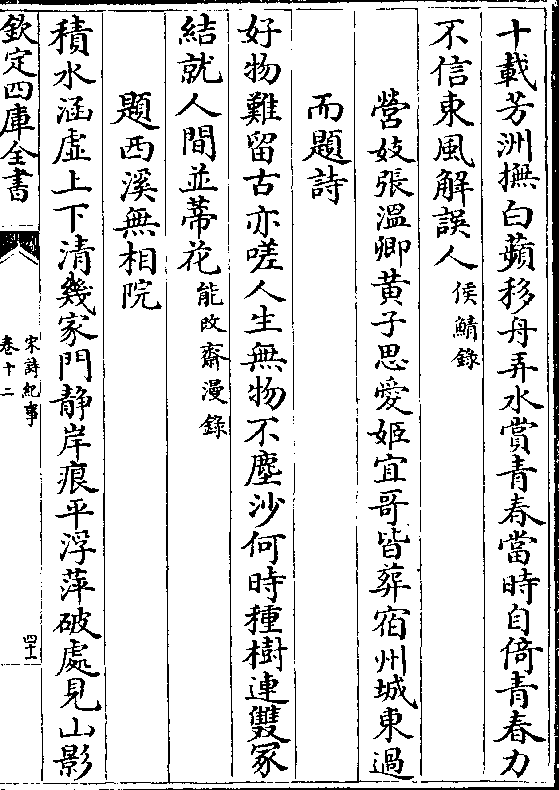 十載芳洲撫白蘋移舟弄水賞青春當時自倚青春力
不信東風解誤人侯鯖錄
營妓張溫卿黃子思愛姬宜哥皆葬宿州城東過
而題詩
好物難留古亦嗟人生無物不塵沙何時種樹連雙冢
結就人間並蒂花能改齋漫錄
題西溪無相院
積水涵虛上下清幾家門静岸痕平浮萍破處見山影
欽定四庫全書
宋詩紀事
卷十二
四十一